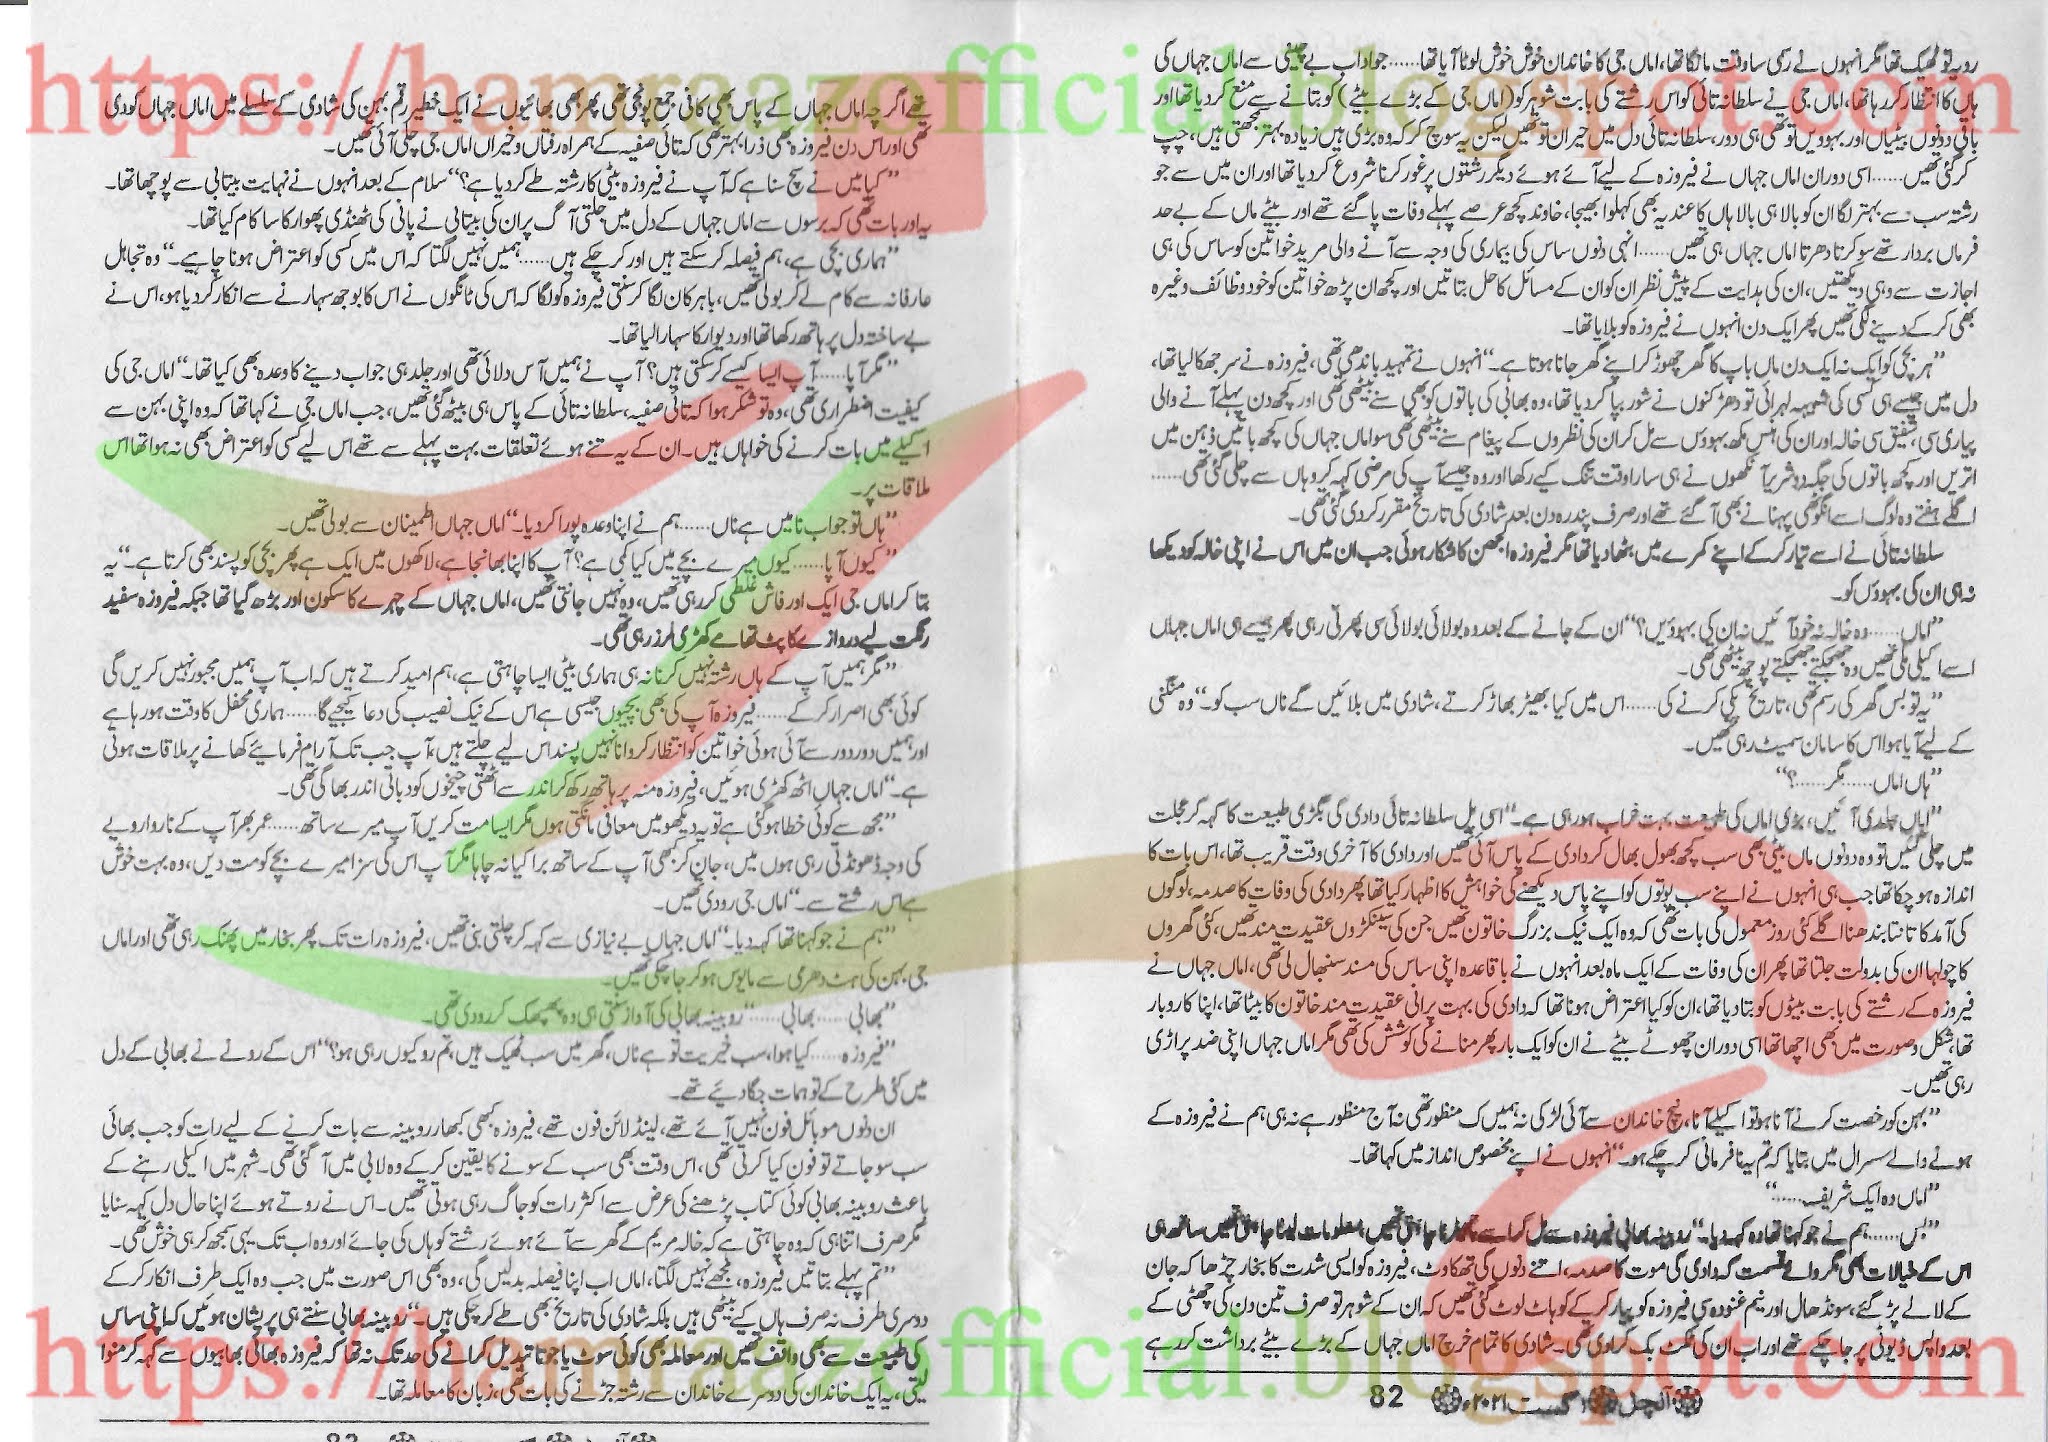 رویہ تو ٹھیک تھا مگر انہوں نے رسمی سا وقت مانگا تھا، اماں جی کا خاندان خوش خوش لوٹ آیا تھا...... جواد اب بے چینی سے اماں جہاں کی
ہاں کا انتظار کر رہا تھا، اماں جی نے سلطانہ تائی کو اس رشتے کی بابت شوہر کو (اماں جی کے بڑے بیٹے) کو بتانے سے منع کر دیا تھا اور
باقی دونوں بیٹیاں اور بہوویں تو تھی ہی دور، سلطانہ تائی دل میں حیران تو تھیں لیکن یہ سوچ کر کہ وہ بڑی ہیں زیادہ بہتر سمجھتی ہیں، چپ
کر گئی تھیں...... اسی دوران اماں جہاں نے فیروزہ کے لیے آئے ہوئے دیگر رشتوں پر غور کرنا شروع کر دیا تھا اور ان میں سے جو
رشتہ سب سے بہتر لگا ان کو بالا ہی بالا ہاں کا عندیہ بھی کہلوا بھیجا، خاوند کچھ عرصے پہلے وفات پا گئے تھے اور بیٹے ماں کے بے حد
فرماں بردار تھے سو کرتا دھرتا اماں جہاں ہی تھیں...... انہی دنوں ساس کی بیماری کی وجہ سے آنے والی مرید خواتین کو ساس کی ہی
اجازت سے وہی دیکھتیں، ان کی ہدایت کے پیش نظر ان کو ان کے مسائل کا حل بتاتیں اور کچھ ان پڑھ خواتین کو خود وظائف وغیرہ
بھی کر کے دینے لگی تھیں پھر ایک دن انہوں نے فیروزہ کو بلایا تھا۔
”ہر بچی کو ایک نہ ایک دن ماں باپ کا گھر چھوڑ کر اپنے گھر جانا ہوتا ہے۔“ انہوں نے تمہید باندھی تھی، فیروزہ نے سر جھکا لیا تھا،
دل میں جیسے ہی کسی کی شبیہہ لہرائی تو دھڑکنوں نے شور بپا کر دیا تھا، وہ بھابی کی باتوں کو بھی سنے بیٹھی تھی اور کچھ دن پہلے آنے والی
پیاری سی، شفیق سی خالہ اور ان کی ہنس مکھ بہووں سے مل کر ان کی نظروں کے پیغام سنے بیٹھی تھی سو اماں جہاں کی کچھ باتیں ذہن میں
اتریں اور کچھ باتوں کی جگہ دو شریر آنکھوں نے ہی سارا وقت تنگ کیے رکھا اور وہ جیسے آپ کی مرضی کہہ کر وہاں سے چلی گئی تھی......
اگلے ہفتے وہ لوگ اسے انگوٹھی پہنانے بھی آ گئے تھے اور صرف پندرہ دن بعد شادی کی تاریخ مقرر کر دی گئی تھی۔
سلطانہ تائی نے اسے تیار کر کے اپنے کمرے میں بٹھا دیا تھا مگر فیروزہ الجھن کا شکار ہوئی جب ان میں اس نے اپنی خالہ کو دیکھا
نہ ہی ان کی بہووں کو۔
”اماں...... وہ خالہ نہ خود آئیں نہ ان کی بہوویں؟“ ان کے جانے کے بعد وہ بولائی بولائی سی پھرتی رہی پھر جیسے ہی اماں جہاں
اسے اکیلی ملی تھیں وہ جھجکتے جھجکتے پوچھ بیٹھی تھی۔
”یہ تو بس گھر کی رسم تھی، تاریخ پکی کرنے کی...... اس میں کیا بھیڑ بھاڑ کرتے، شادی میں بلائیں گے ناں سب کو۔“ وہ منگنی
کے لیے آیا ہوا اس کا سامان سمیٹ رہی تھیں۔
”ہاں اماں...... مگر......؟“
”اماں جلدی آئیں، بڑی اماں کی طبیعت بہت خراب ہو رہی ہے۔“ اسی پل سلطانہ تائی دادی کی بگڑی طبیعت کا کہہ کر عجلت
میں چلی گئیں تو وہ دونوں ماں بیٹی بھی سب کچھ بھول بھال کر دادی کے پاس آئی تھیں اور دادی کا آخری وقت قریب تھا، اس بات کا
اندازہ ہو چکا تھا جب ہی انہوں نے اپنے سب پوتوں کو اپنے پاس دیکھنے کی خواہش کا اظہار کیا تھا پھر دادی کی وفات کا صدمہ، لوگوں
کی آمد کا تانتا بندھنا اگلے کئی روز معمول کی بات تھی کہ وہ ایک نیک بزرگ خاتون تھیں جن کی سینکڑوں عقیدت مند تھیں، کئی گھروں
کا چولہا ان کی بدولت جلتا تھا پھر ان کی وفات کے ایک ماہ بعد انہوں نے باقاعدہ اپنی ساس کی مسند سنبھال لی تھی، اماں جہاں نے
فیروزہ کے رشتے کی بابت بیٹوں کو بتا دیا تھا، ان کو کیا اعتراض ہونا تھا کہ دادی کی بہت پرانی عقیدت مند خاتون کا بیٹا تھا، اپنا کاروبار
تھا، شکل و صورت میں بھی اچھا تھا اسی دوران چھوٹے بیٹے نے ان کو ایک بار پھر منانے کی کوشش کی تھی مگر اماں جہاں اپنی ضد پر اڑی
رہی تھیں۔
”بہن کو رخصت کرنے آنا ہو تو اکیلے آنا، نیچ خاندان سے آئی لڑکی نہ ہمیں کل منظور تھی نہ آج منظور ہے نہ ہی ہم نے فیروزہ کے
ہونے والے سسرال میں بتایا کہ تم یہ نافرمانی کر چکے ہو۔“ انہوں نے اپنے مخصوص انداز میں کہا تھا۔
”اماں وہ ایک شریف......“
”بس...... ہم نے جو کہنا تھا وہ کہہ دیا۔“ روبینہ بھابی فیروزہ سے مل کر اسے چاہتی تھیں، معلومات لینا چاہتی تھیں ساتھ ہی
اس کے خیالات بھی مگر وائے قسمت کہ دادی کی موت کا صدمہ، اتنے دنوں کی تھکاوٹ، فیروزہ کو ایسی شدت کا بخار چڑھا کہ جان
کے لالے پڑ گئے، سو نڈھال اور نیم غنودہ سی فیروزہ کو پیار کر کے کوہاٹ لوٹ گئی تھیں کہ ان کے شوہر تو صرف تین دن کی چھٹی کے
بعد واپس ڈیوٹی پر جا چکے تھے اور اب ان کی ٹکٹ بک کرا دی تھی۔ شادی کا تمام خرچ اماں جہاں کے بڑے بیٹے برداشت کر رہے
آنچل اگست ۲۰۲۱ء 82
تھے اگرچہ اماں جہاں کے پاس بھی کافی جمع پونجی تھی پھر بھی بھائیوں نے ایک خطیر رقم بہن کی شادی کے سلسلے میں اماں جہاں کو دی
تھی اور اس دن فیروزہ بھی ذرا بہتر تھی کہ تائی صفیہ کے ہمراہ رفتاں و خیزاں اماں جی چلی آئی تھیں۔
”کیا میں نے سچ سنا ہے کہ آپ نے فیروزہ بیٹی کا رشتہ طے کر دیا ہے؟“ سلام کے بعد انہوں نے نہایت بیتابی سے پوچھا تھا۔
یہ اور بات تھی کہ برسوں سے اماں جہاں کے دل میں جلتی آگ پر ان کی بیتابی نے پانی کی ٹھنڈی پھوار کا سا کام کیا تھا۔
”ہماری بچی ہے، ہم فیصلہ کر سکتے ہیں اور کر چکے ہیں...... ہمیں نہیں لگتا کہ اس میں کسی کو اعتراض ہونا چاہیے۔“ وہ تجاہل
عارفانہ سے کام لے کر بولی تھیں، باہر کان لگا کر سنتی فیروزہ کو لگا کہ اس کی ٹانگوں نے اس کا بوجھ سہارنے سے انکار کر دیا ہو، اس نے
بے ساختہ دل پر ہاتھ رکھا تھا اور دیوار کا سہارا لیا تھا۔
”مگر آپا...... آپ ایسا کیسے کر سکتی ہیں؟ آپ نے ہمیں آس دلائی تھی اور جلد ہی جواب دینے کا وعدہ بھی کیا تھا۔“ اماں جی کی
کیفیت اضطراری تھی، وہ تو شکر ہوا کہ تائی صفیہ، سلطانہ تائی کے پاس ہی بیٹھ گئی تھیں، جب اماں جی نے کہا تھا کہ وہ اپنی بہن سے
اکیلے میں بات کرنے کی خواہاں ہیں۔ ان کے یہ تنے ہوئے تعلقات بہت پہلے سے تھے اس لیے کسی کو اعتراض بھی نہ ہوا تھا اس
ملاقات پر۔
”ہاں تو جواب نا میں ہے ناں...... ہم نے اپنا وعدہ پورا کر دیا۔“ اماں جہاں اطمینان سے بولی تھیں۔
”کیوں آپا...... کیوں میرے بچے میں کیا کمی ہے؟ آپ کا اپنا بھانجا ہے، لاکھوں میں ایک ہے پھر بچی کو پسند بھی کرتا ہے۔“ یہ
بتا کر اماں جی ایک اور فاش غلطی کر رہی تھیں، وہ نہیں جانتی تھیں، اماں جہاں کے چہرے کا سکون اور بڑھ گیا تھا جبکہ فیروزہ سفید
رنگت لیے دروازے کا پٹ تھامے کھڑی لرز رہی تھی۔
”مگر ہمیں آپ کے ہاں رشتہ نہیں کرنا نہ ہی ہماری بیٹی ایسا چاہتی ہے، ہم امید کرتے ہیں کہ اب آپ ہمیں مجبور نہیں کریں گی
کوئی بھی اصرار کر کے...... فیروزہ آپ کی بھی بچیوں جیسی ہے اس کے نیک نصیب کی دعا کیجیے گا...... ہماری محفل کا وقت ہو رہا ہے
اور ہمیں دور دور سے آئی ہوئی خواتین کو انتظار کروانا نہیں پسند اس لیے چلتے ہیں، آپ جب تک آرام فرمائیے کھانے پر ملاقات ہوتی
ہے۔“ اماں جہاں اٹھ کھڑی ہوئیں، فیروزہ منہ پر ہاتھ رکھ کر اندر سے اٹھتی چیخوں کو دباتی اندر بھاگی تھی۔
”مجھ سے کوئی خطا ہو گئی ہے تو یہ دیکھو میں معافی مانگتی ہوں مگر ایسا مت کریں آپ میرے ساتھ...... عمر بھر آپ کے ناروا رویے
کی وجہ ڈھونڈتی رہی ہوں میں، جان کر کبھی آپ کے ساتھ برا کیا نہ چاہا مگر آپ اس کی سزا میرے بچے کو مت دیں، وہ بہت خوش
ہے اس رشتے سے۔“ اماں جی رو دی تھیں۔
”ہم نے جو کہنا تھا کہہ دیا۔“ اماں جہاں بے نیازی سے کہہ کر چلتی بنی تھیں، فیروزہ رات تک پھر بخار میں پھنک رہی تھی اور اماں
جی بہن کی ہٹ دھرمی سے مایوس ہو کر جا چکی تھیں۔
”بھابی...... بھابی......“ روبینہ بھابی کی آواز سنتی ہی وہ پھپھک کر رو دی تھی۔
”فیروزہ...... کیا ہوا، سب خیریت تو ہے ناں، گھر میں سب ٹھیک ہیں، تم رو کیوں رہی ہو؟“ اس کے رونے نے بھابی کے دل
میں کئی طرح کے توہمات جگا دیئے تھے۔
ان دنوں موبائل فون نہیں آئے تھے، لینڈ لائن فون تھے، فیروزہ کبھی کبھار روبینہ سے بات کرنے کے لیے رات کو جب بھائی
سب سو جاتے تو فون کیا کرتی تھی، اس وقت بھی سب کے سونے کا یقین کر کے وہ لابی میں آ گئی تھی۔ شہر میں اکیلی رہنے کے
باعث روبینہ بھابی کوئی کتاب پڑھنے کی غرض سے اکثر رات کو جاگ رہی ہوتی تھیں۔ اس نے روتے ہوئے اپنا حال دل کہہ سنایا
مگر صرف اتنا ہی کہ وہ چاہتی ہے کہ خالہ مریم کے گھر سے آئے ہوئے رشتے کو ہاں کی جائے اور وہ اب تک یہی سمجھ کر ہی خوش تھی۔
”تم پہلے بتاتیں فیروزہ، مجھے نہیں لگتا، اماں اب اپنا فیصلہ بدلیں گی، وہ بھی اس صورت میں جب وہ ایک طرف انکار کر کے
دوسری طرف نہ صرف ہاں کیے بیٹھی ہیں بلکہ شادی کی تاریخ بھی طے کر چکی ہیں۔“ روبینہ بھابی سنتے ہی پریشان ہوئیں کہ اپنی ساس
کی طبیعت سے بھی واقف تھیں اور معاملہ بھی کوئی سوٹ یا جوتا تبدیل کرانے کی حد تک نہ تھا کہ فیروزہ بھائی بھابیوں سے کہہ کر منوا
لیتی، یہ ایک خاندان کی دوسرے خاندان سے رشتہ جڑنے کی بات تھی، زبان کا معاملہ تھا۔
https://hamraazofficial.blogspot.com
https://hamraazofficial.blogspot.com